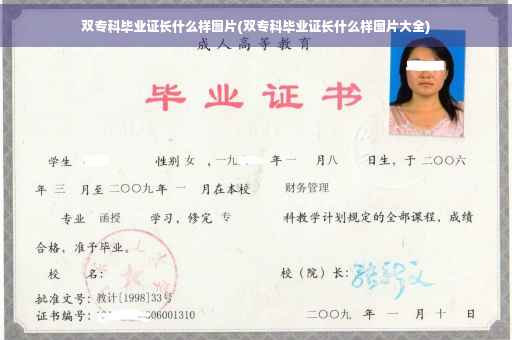 双专科毕业证长什么样图片(双专科毕业证长什么样图片大全)
成人高等教育
毕业证书
学生 性别 女 ，一九 年 一 月 八 日生，于 二〇〇六
年 三 月至 二〇〇九 年 一 月在本校 财务管理
专业 函授 学习，修完 专 科教学计划规定的全部课程，成绩
合格，准予毕业。
校 名： 校（院）长：
批准文号：教计[1998]33号
证书编号： 06001310 二〇〇九 年 一 月 十 日